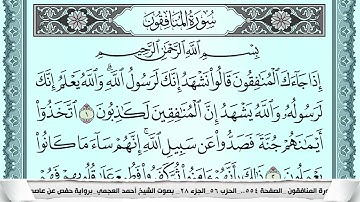 سُورَةُ المُنَافِقُونَ
بِسْمِ اللَّهِ الرَّحْمَٰنِ الرَّحِيمِ
إِذَا جَاءَكَ ٱلْمُنَٰفِقُونَ قَالُوا۟ نَشْهَدُ إِنَّكَ لَرَسُولُ ٱللَّهِۗ وَٱللَّهُ يَعْلَمُ إِنَّكَ
لَرَسُولُهُۥ وَٱللَّهُ يَشْهَدُ إِنَّ ٱلْمُنَٰفِقِينَ لَكَٰذِبُونَ ١ ٱتَّخَذُوٓا۟
أَيْمَٰنَهُمْ جُنَّةً فَصَدُّوا۟ عَن سَبِيلِ ٱللَّهِۚ إِنَّهُمْ سَآءَ مَا كَانُوا۟
٢ ذَٰلِكَ بِأَنَّهُمْ ءَامَنُوا۟ ثُمَّ كَفَرُوا۟ فَطُبِعَ عَلَىٰ فَهُمْ
رة المنافقون .. الصفحة ٥٥٤.. الحزب ٥٦ .. الجزء ٢٨ .. بصوت الشيخ أحمد العجمي .. برواية حفص عن عاصم